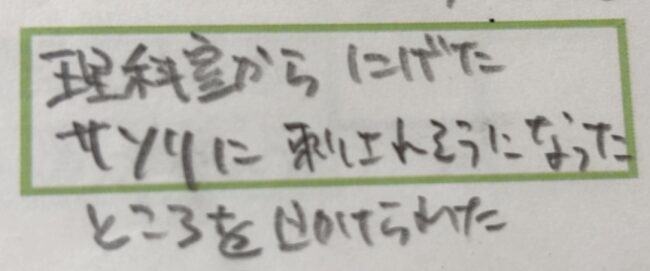 理科室から にげた
サソリに 刺されそうになった
ところを助けられた